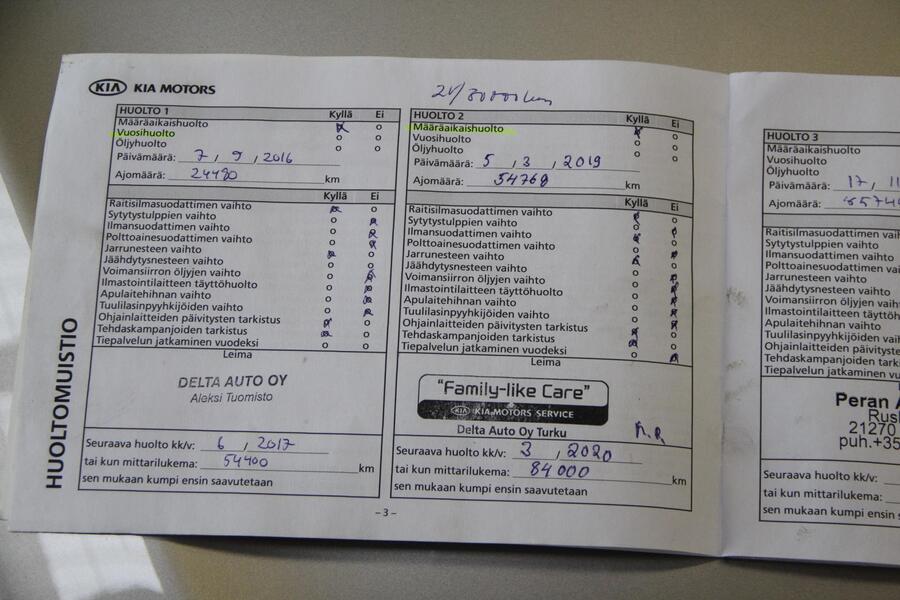 KIA KIA MOTORS
HUOLTOMUISTIO
HUOLTO 1 Kyllä Ei
Määräaikaishuolto
Vuosihuolto
Öljyhuolto
Päivämäärä: 7 , 9 , 2016
Ajomäärä: 24480 km
Kyllä Ei
Raitisilmasuodattimen vaihto
Sytytystulppien vaihto
Ilmansuodattimen vaihto
Polttoainesuodattimen vaihto
Jarrunesteen vaihto
Jäähdytysnesteen vaihto
Voimansiirron öljyjen vaihto
Ilmastointilaitteen täyttöhuolto
Apulaitehihnan vaihto
Tuulilasinpyyhkijöiden vaihto
Ohjainlaitteiden päivitysten tarkistus
Tehdaskampanjoiden tarkistus
Tiepalvelun jatkaminen vuodeksi
Leima
DELTA AUTO OY
Aleksi Tuomisto
Seuraava huolto kk/v: 6 , 2017
tai kun mittarilukema: 54400 km
sen mukaan kumpi ensin saavutetaan
HUOLTO 2 Kyllä Ei
Määräaikaishuolto
Vuosihuolto
Öljyhuolto
Päivämäärä: 5 , 3 , 2019
Ajomäärä: 54768 km
Kyllä Ei
Raitisilmasuodattimen vaihto
Sytytystulppien vaihto
Ilmansuodattimen vaihto
Polttoainesuodattimen vaihto
Jarrunesteen vaihto
Jäähdytysnesteen vaihto
Voimansiirron öljyjen vaihto
Ilmastointilaitteen täyttöhuolto
Apulaitehihnan vaihto
Tuulilasinpyyhkijöiden vaihto
Ohjainlaitteiden päivitysten tarkistus
Tehdaskampanjoiden tarkistus
Tiepalvelun jatkaminen vuodeksi
Leima
"Family-like Care"
KIA KIA MOTORS SERVICE
Delta Auto Oy Turku
Seuraava huolto kk/v: 3 , 2020
tai kun mittarilukema: 84 000 km
sen mukaan kumpi ensin saavutetaan
– 3 –
HUOLTO 3
Määräaikaishuolto
Vuosihuolto
Öljyhuolto
Päivämäärä: 17 , 11
Ajomäärä:
Raitisilmasuodattimen
Sytytystulppien vaihto
Ilmansuodattimen vaih
Polttoainesuodattimen
Jarrunesteen vaihto
Jäähdytysnesteen vaihto
Voimansiirron öljyjen vaih
Ilmastointilaitteen täyttöh
Apulaitehihnan vaihto
Tuulilasinpyyhkijöiden vai
Ohjainlaitteiden päivityst
Tehdaskampanjoiden tark
Tiepalvelun jatkaminen vu
Peran A
Rusk
21270
puh.+35
Seuraava huolto kk/v:
tai kun mittarilukema:
sen mukaan kumpi ensin s